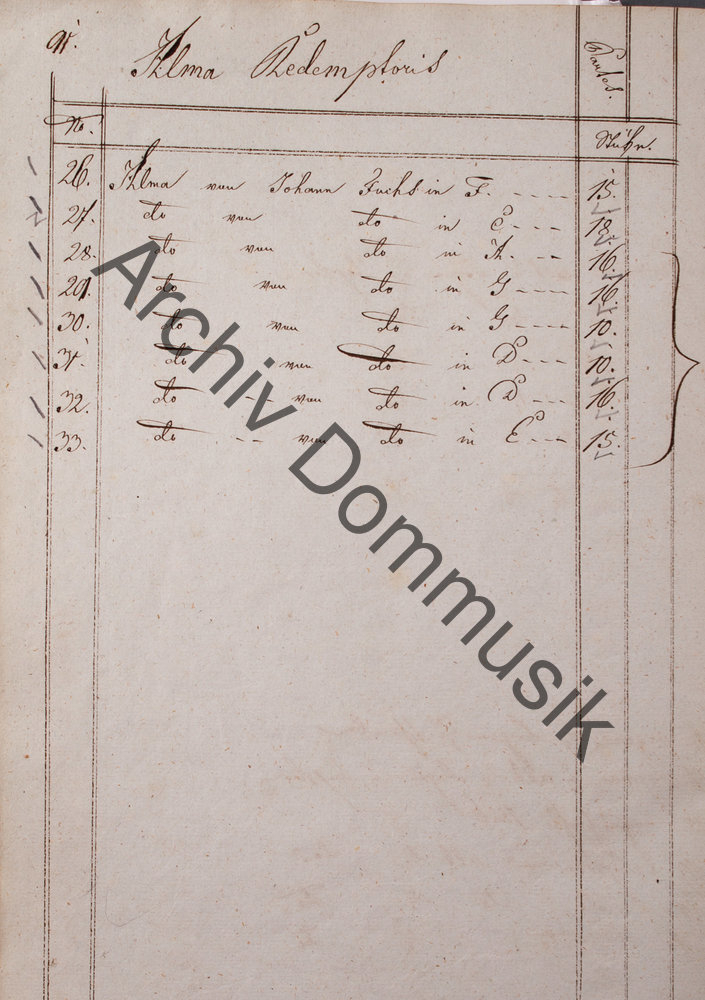 Alma Redemptoris
Partes.
No.
26. Alma von Johann Fuchs in F. - - - - 15.
27. do von do in C - - - - 18.
28. do von do in A. - - 16.
29. do von do in G - - - - 16.
30. do von do in G - - - - 10.
31. do von do in D - - - 10.
32. do -- von do in D - - - 16.
33. do -- von do in E - - - 15.
Archiv Dommusik